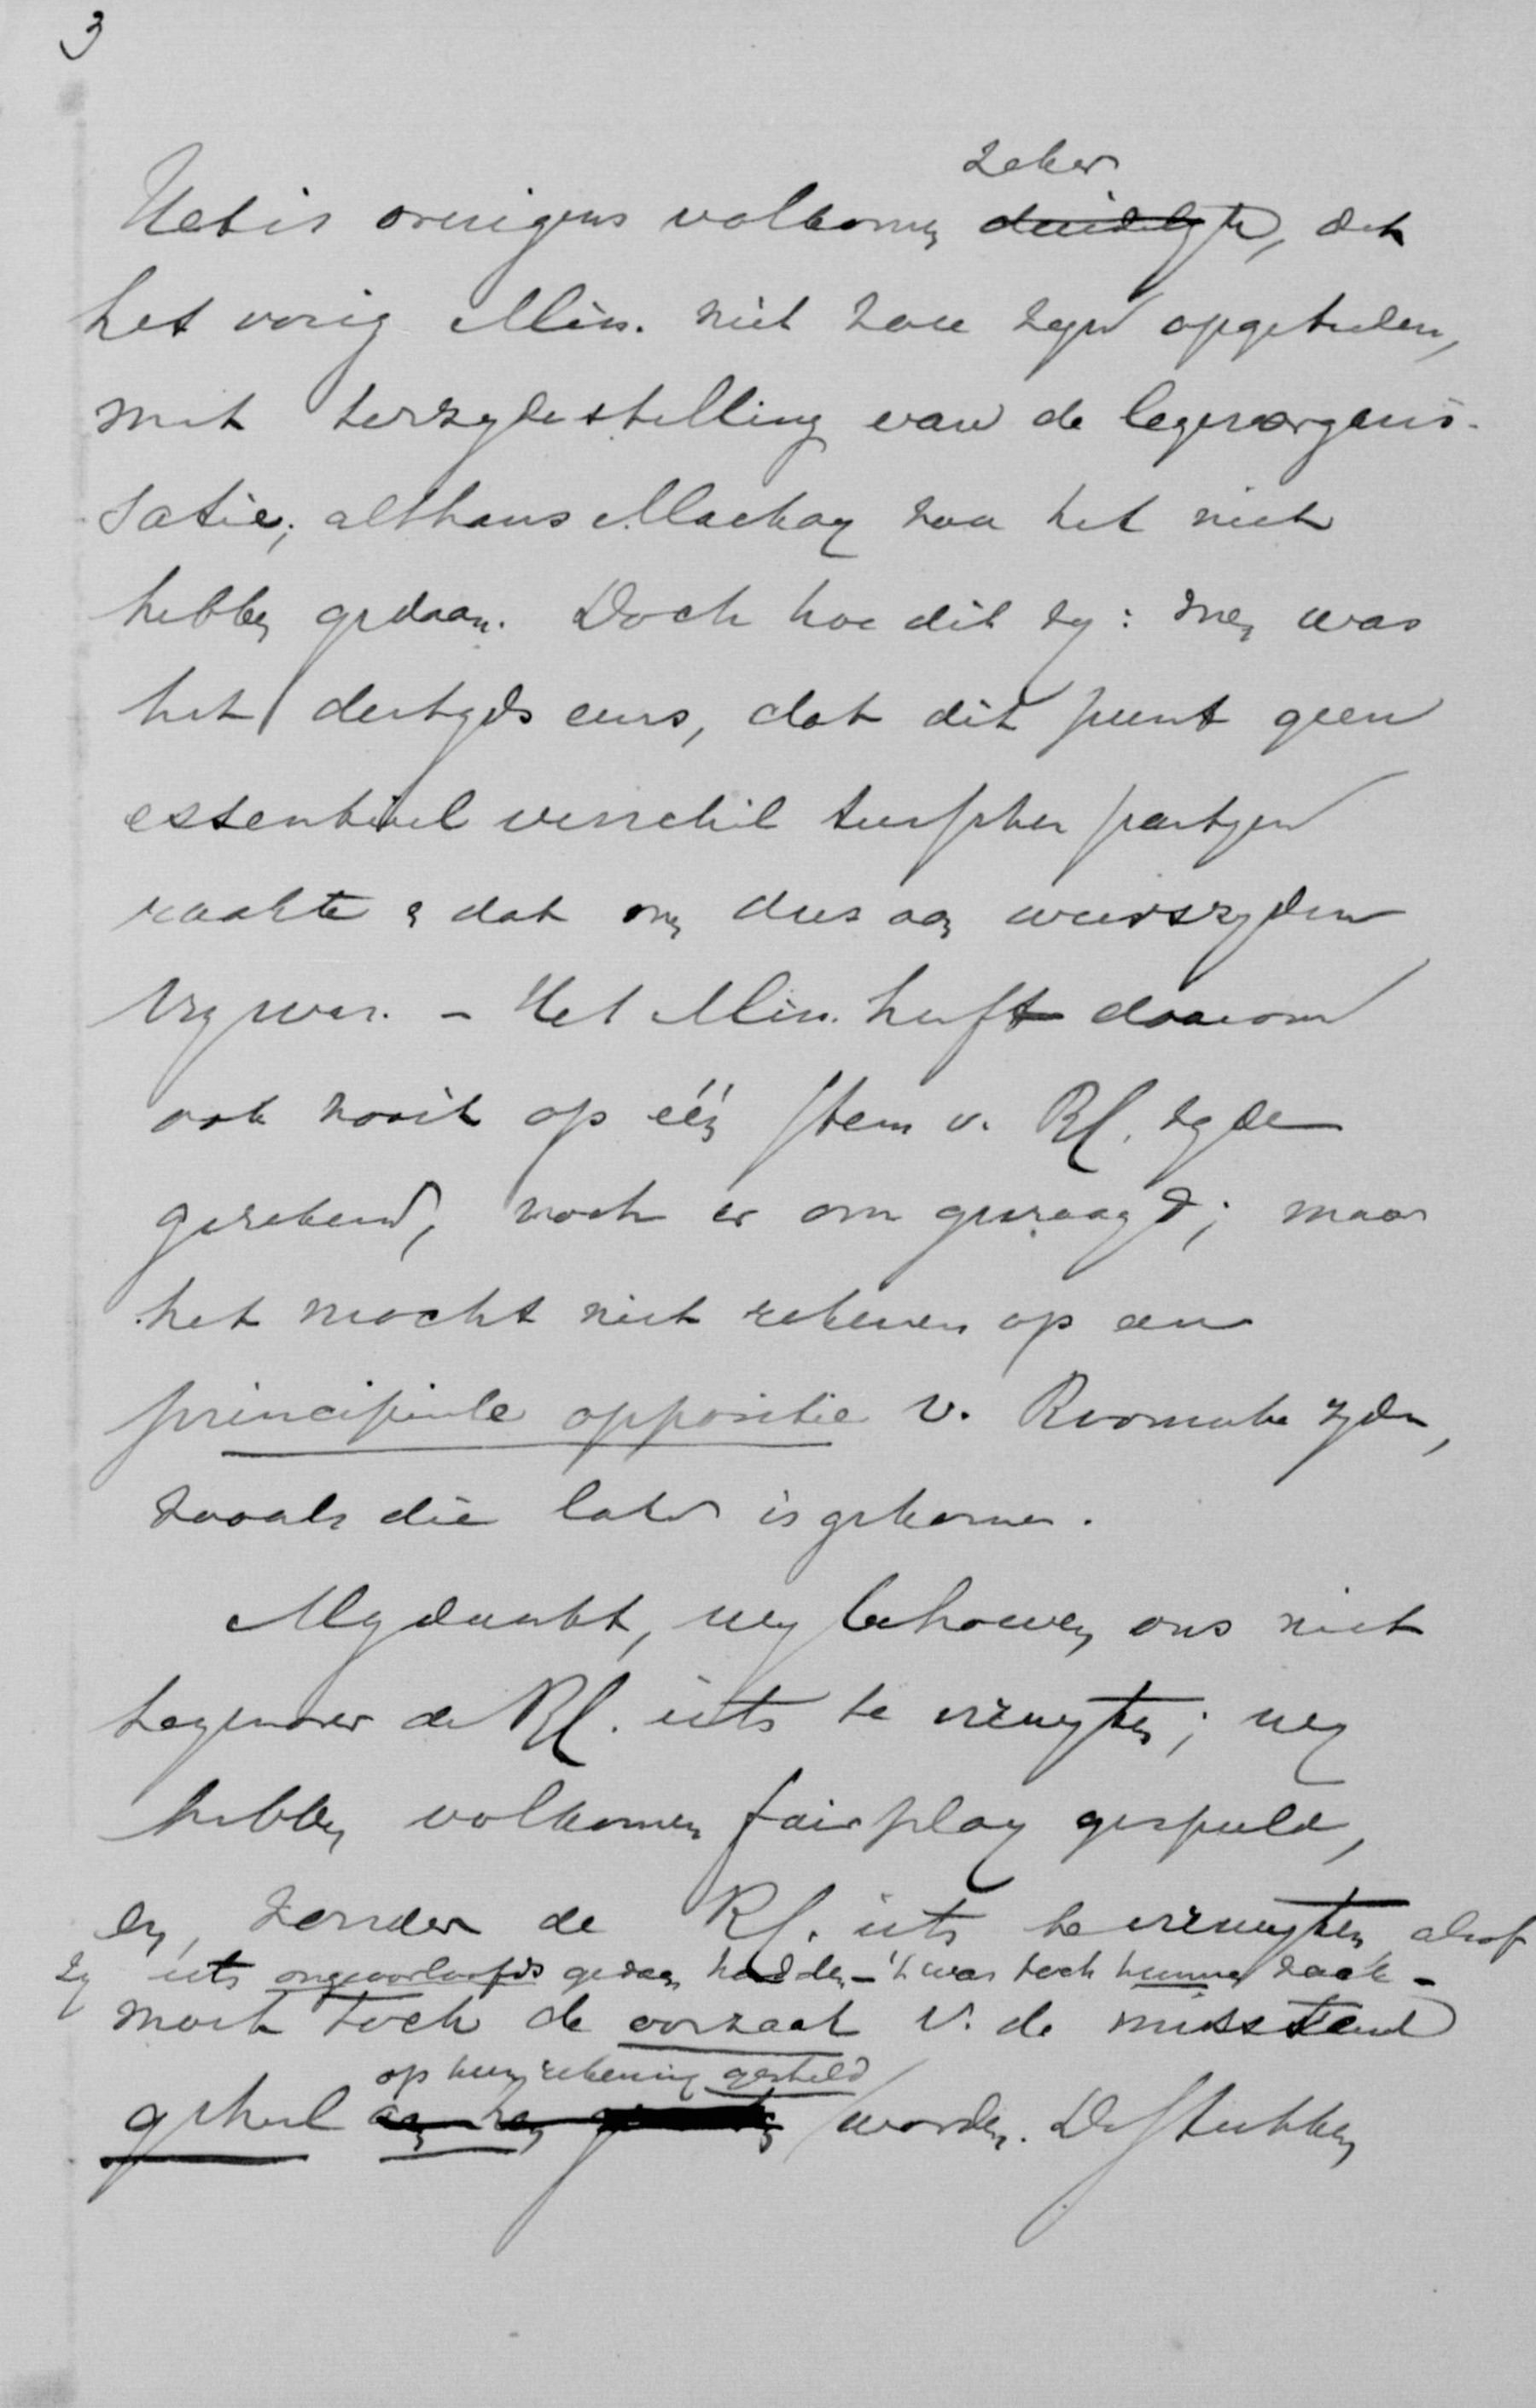 3
zeker
Het is overigens volkomen duidelijk, dat
het vorig Min. niet zou zijn opgetreden,
met terzijdestelling van de legerorgani-
satie; althans Mackay zou het niet
hebben gedaan. Doch hoe dit zij: men was
het destijds eens, dat dit punt geen
essentieel verschil tusschen partijen
raakte & dat men dus aan weerszijden
vrij was. – Het Min. heeft daarom
ook nooit op één stem v. RC. zijde
gerekend, noch er om gevraagd; maar
het mocht niet rekenen op een
principieele oppositie v. Roomsche zijde,
zooals die later is gekomen.
Mij dunkt, wij behoeven ons niet
tegenover de RC. iets te verwijten; wij
hebben volkomen fair play gespeeld,
en, zonder de RC. iets te verwijten alsof
zij iets ongeoorloofds gedaan hadden – 't was toch hunne zaak –
moet toch de oorzaak v. de misstand
op hun rekening gesteld
geheel aan hen worden. De stukken